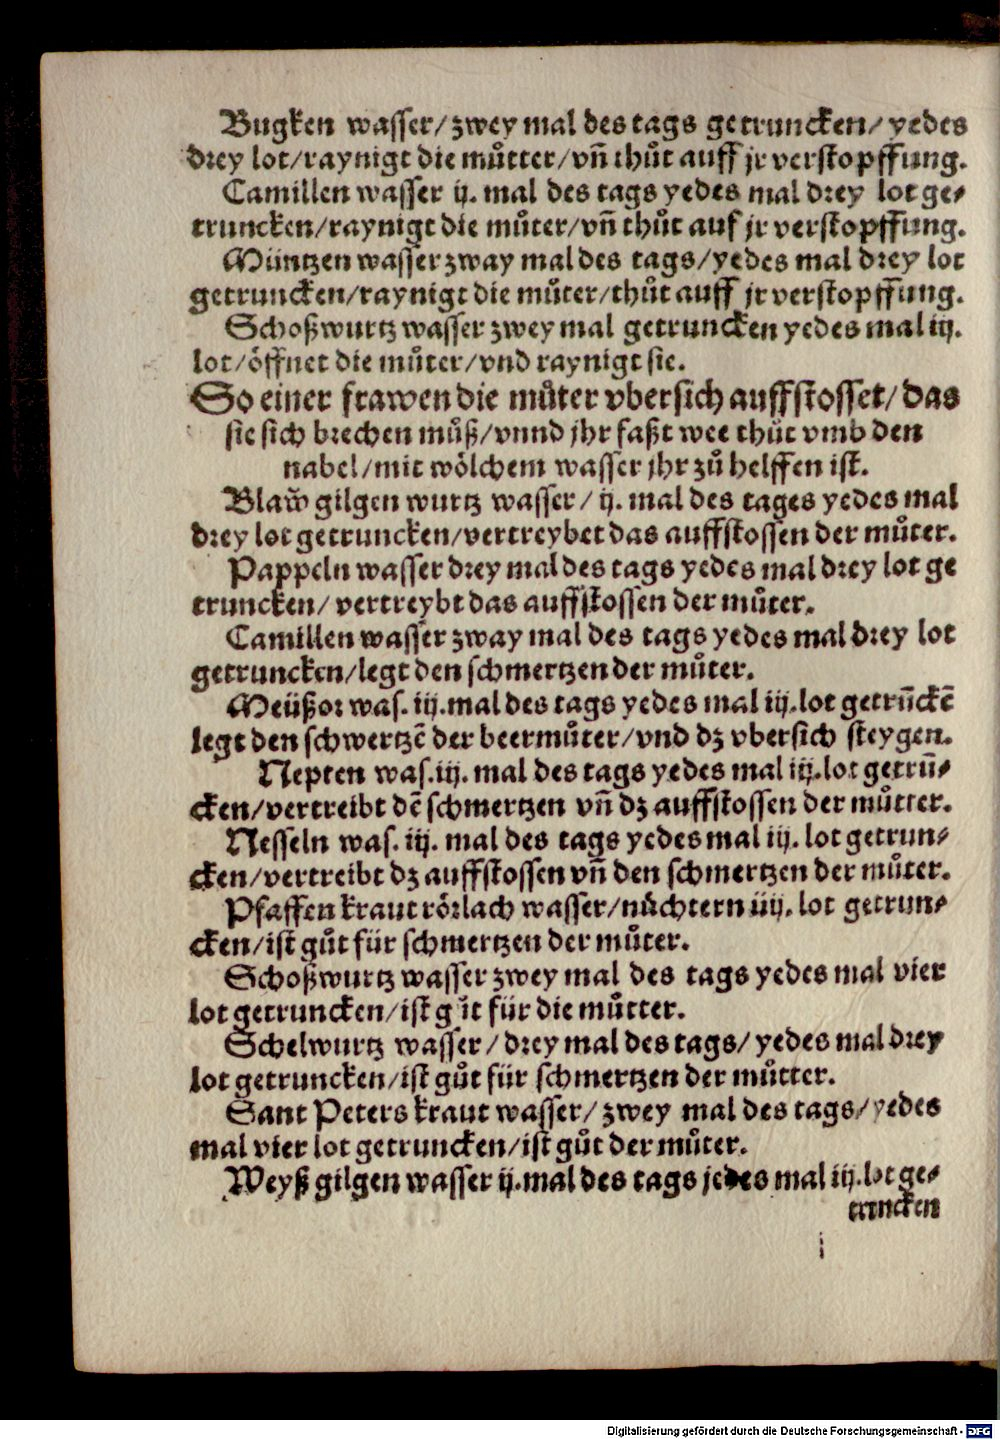 Bugken wasser/zwey mal des tags getruncken/yedes
drey lot/raynigt die můtter/vñ thůt auff jr verstopffung.
Camillen wasser ij. mal des tags yedes mal drey lot ge-
truncken/raynigt die můter/vñ thůt auf jr verstopffung.
Müntzen wasser zway mal des tags/yedes mal drey lot
getruncken/raynigt die můter/thůt auff jr verstopffung.
Schoßwurtz wasser zwey mal getruncken yedes mal iij.
lot/öffnet die můter/vnd raynigt sie.
So einer frawen die můter vbersich auffstosset/das
sie sich brechen můß/vnnd jhr faßt wee thůt vmb den
nabel/mit wölchem wasser jhr zů helffen ist.
Blaw̃ gilgen wurtz wasser/ij. mal des tages yedes mal
drey lot getruncken/vertreybet das auffstossen der můter.
Pappeln wasser drey mal des tags yedes mal drey lot ge
truncken/vertreybt das auffstossen der můter.
Camillen wasser zway mal des tags yedes mal drey lot
getruncken/legt den schmertzen der můter.
Meüßor was. iij.mal des tags yedes mal iij.lot getrũckẽ
legt den schwertzẽ der beermůter/vnd dz vbersich steygen.
Nepten was.iij. mal des tags yedes mal iij.lot getrũ-
cken/vertreibt dẽ schmertzen vñ dz auffstossen der můtter.
Nesseln was. iij. mal des tags yedes mal iij. lot getrun-
cken/vertreibt dz auffstossen vñ den schmertzen der můter.
Pfaffen kraut rörlach wasser/nüchtern iiij. lot getrun-
cken/ist gůt für schmertzen der můter.
Schoßwurtz wasser zwey mal des tags yedes mal vier
lot getruncken/ist gůt für die můtter.
Schelwurtz wasser/drey mal des tags/yedes mal drey
lot getruncken/ist gůt für schmertzen der můtter.
Sant Peters kraut wasser/zwey mal des tags/yedes
mal vier lot getruncken/ist gůt der můter.
Weyß gilgen wasser ij.mal des tags jedes mal iij.lot ge-
truncken
Digitalisierung gefördert durch die Deutsche Forschungsgemeinschaft - DFG